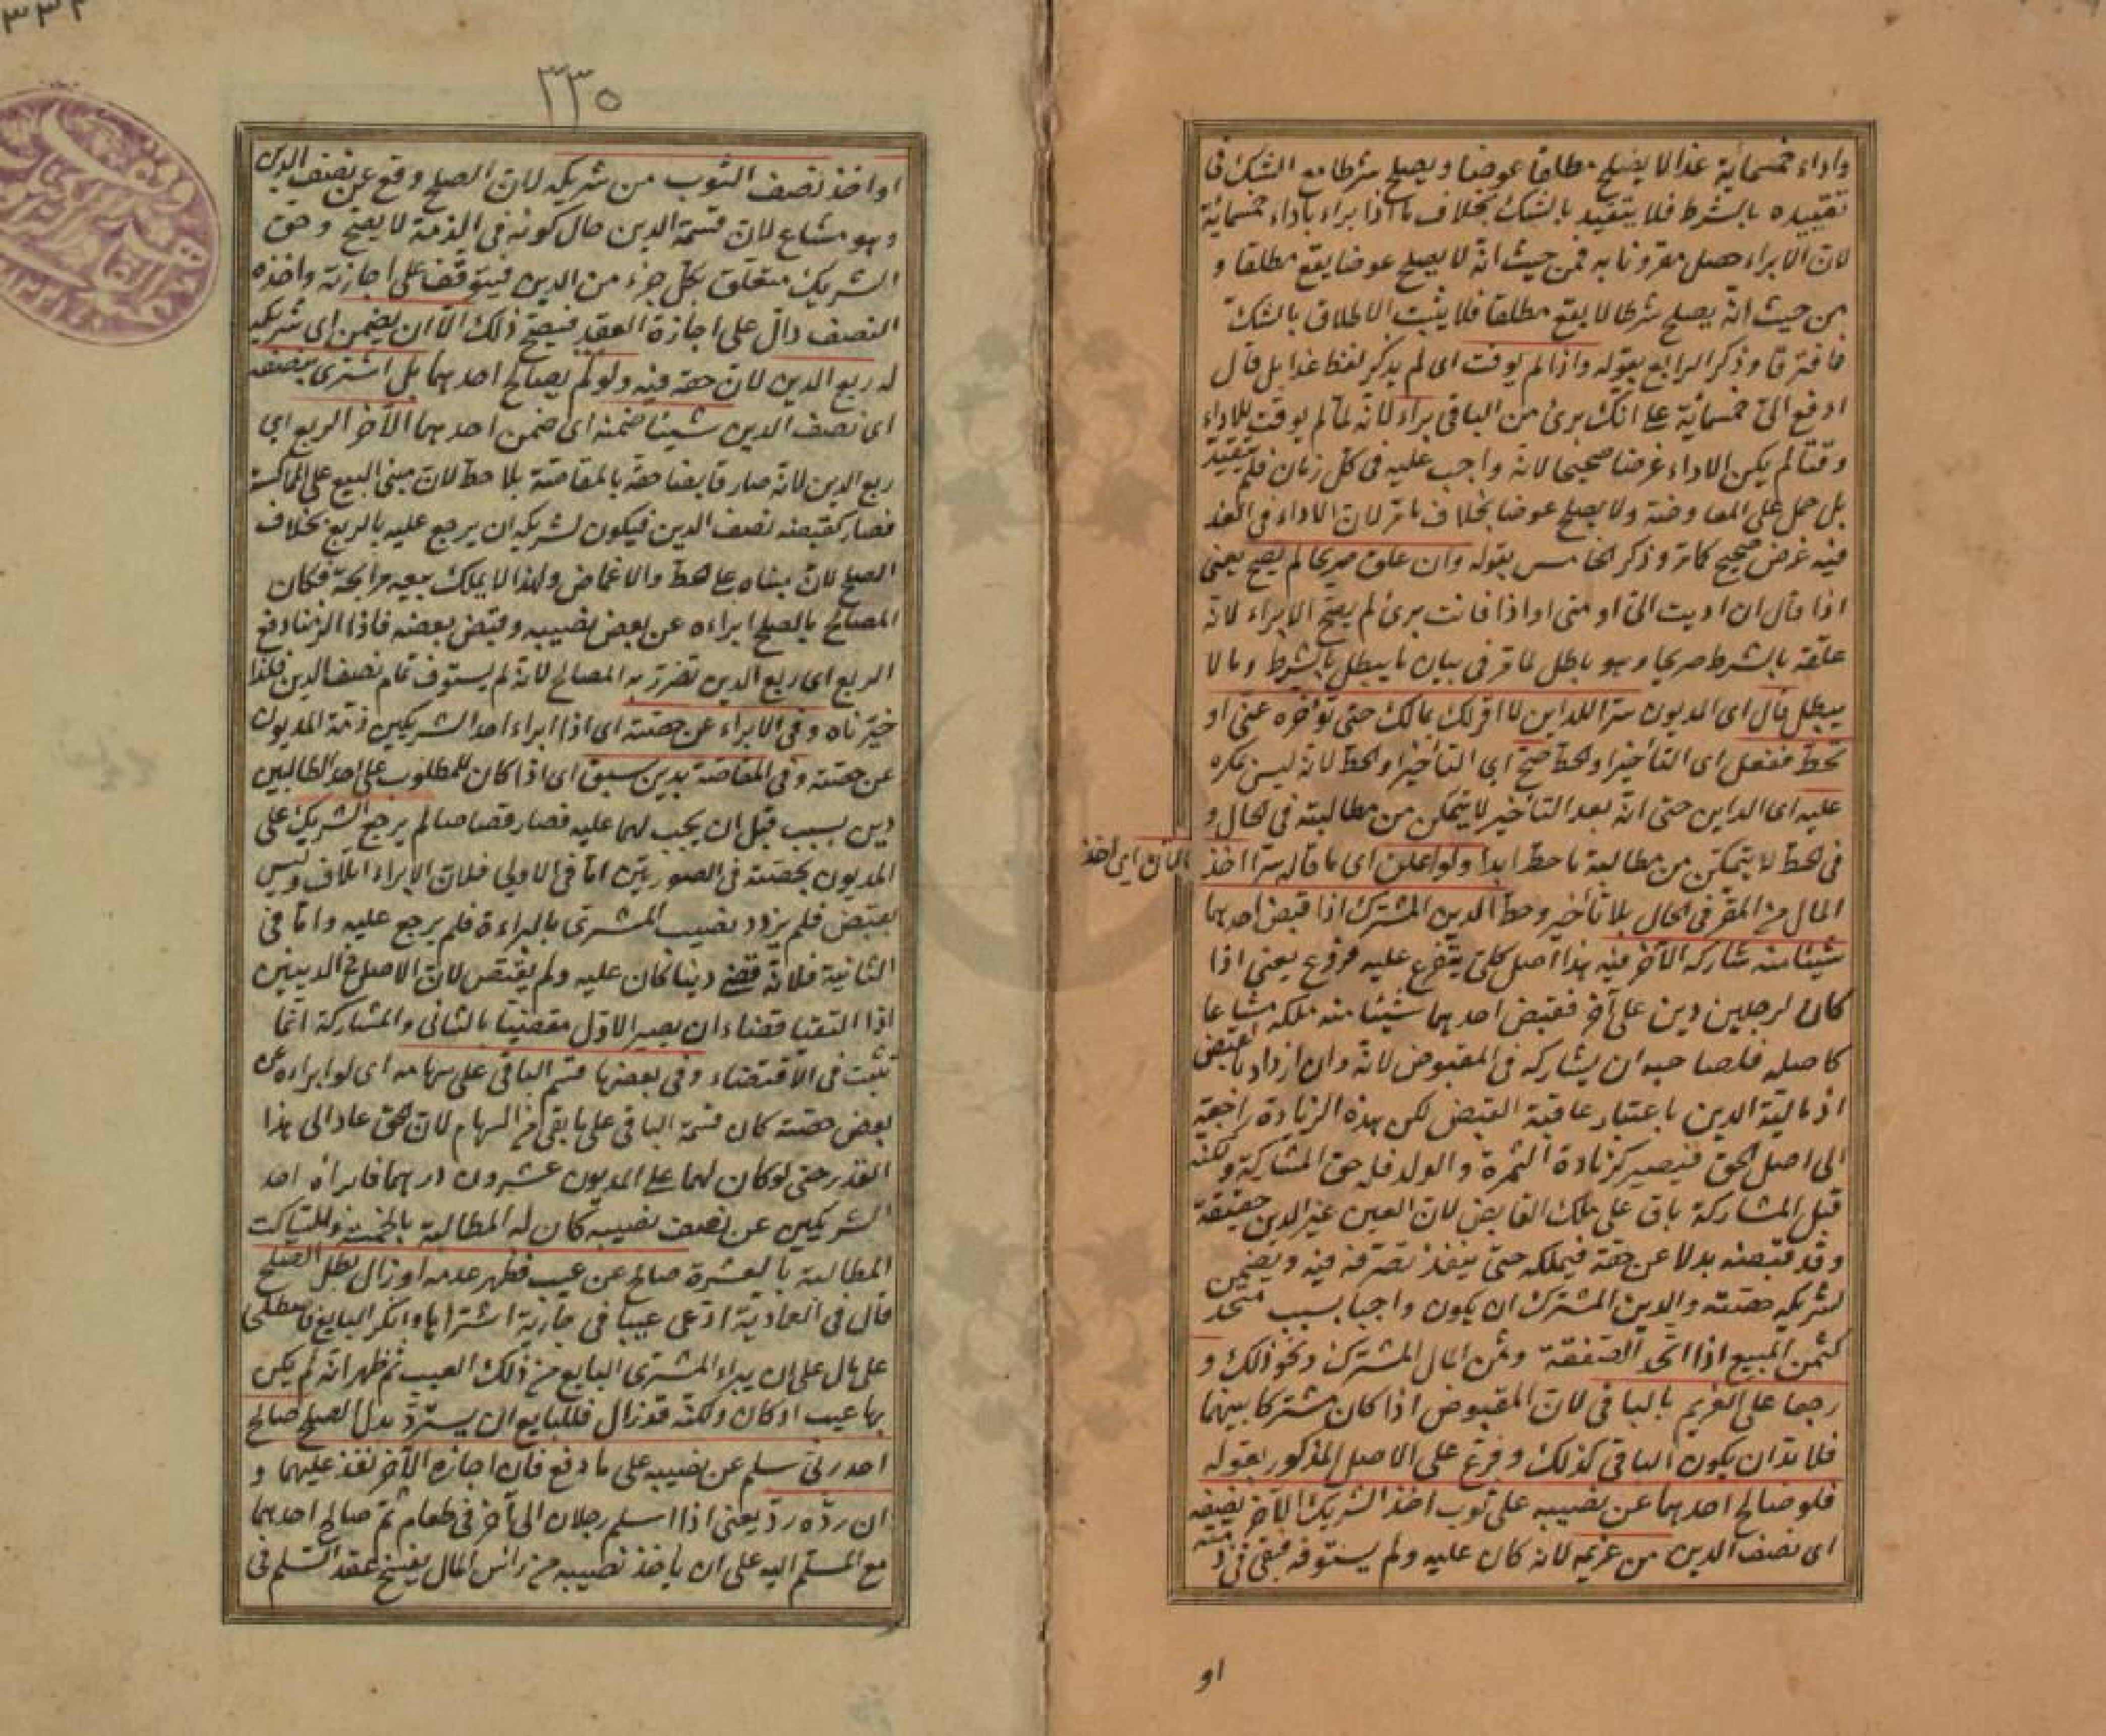 واداء خمسمائة غدا لا يصلح مطلقا عوضا ويصلح شرطا مع الشك فى
تقييده بالشرط فلا يتقيد بالشك بخلاف ما اذا براء باداء خمسمائة
لان الابراء حصل مقرونا به فمن حيث انه لا يصلح عوضا يقع مطلقا و
من حيث انه يصلح شرطا لا يقع مطلقا فلا يثبت الاطلاق بالشك
فافترقا وذكر الرابع بقوله واذا لم يوقت اى لم يذكر لفظ غدا بل قال
ادفع الىّ خمسمائة على انك برئ من الباقى براء لانه لما لم يوقت للاداء
وقتا لم يكن الاداء غرضا صحيحا لانه واجب عليه فى كل زمان فلم يتقيد
بل حمل على المعاوضة ولا يصلح عوضا بخلاف ما مر لان الاداء فى الغد
فيه غرض صحيح كما مر وذكر الخامس بقوله وان علق صريحا لم يصح يعنى
اذا قال ان اديت الىّ او متى او اذا فانت برئ لم يصح الابراء لانه
علقه بالشرط صريحا وهو باطل لما مر فى بيان ما يبطل بالشرط وما لا
يبطل قال اى المديون سرا للداين لا اقر لك بمالك حتى تؤخره عنى او
تحط ففعل اى التأخير او الحط صح اى التأخير او الحط لانه ليس بمكره
عليه اى الداين حتى انه بعد التأخير لا يتمكن من مطالبته فى الحال و
فى الحط لا يتمكن من مطالبة ما حط ابدا ولو اعلن اى ما قاله سرا اخذ
المال اى اخذ
المال من المقر فى الحال بلا تأخير وحط الدين المشترك اذا قبض احدهما
شيئا منه شاركه الآخر فيه هذا اصل كلى يتفرع عليه فروع يعنى اذا
كان لرجلين دين على آخر فقبض احدهما شيئا منه ملكه مشاعا
كاصله فلصاحبه ان يشاركه فى المقبوض لانه وان ازداد بالقبض
اذ مالية الدين باعتبار عاقبة القبض لكن هذه الزيادة راجعة
الى اصل الحق فيصير كزيادة الثمرة والولد فله حق المشاركة ولكنه
قبل المشاركة باق على ملك القابض لان العين غير الدين حقيقة
وقد قبضه بدلا عن حقه فيملكه حتى ينفذ تصرفه فيه ويضمن
لشريكه حصته والدين المشترك ان يكون واجبا بسبب متحد
كثمن المبيع اذا اتحد الصفقة وثمن المال المشترك ونحو ذلك و
رجعا على الغريم بالباقى لان المقبوض اذا كان مشتركا بينهما
فلا بد ان يكون الباقى كذلك وفرع على الاصل المذكور بقوله
فلو صالح احدهما عن نصيبه على ثوب اخذ الشريك الآخر نصفه
اى نصف الدين من غريمه لانه كان عليه ولم يستوفه فبقى فى ذمته
او
٣٣٠
او اخذ نصف الثوب من شريكه لان الصلح وقع عن نصف الدين
وهو مشاع لان قسمة الدين حال كونه فى الذمة لا يصح وحق
الشريك متعلق بكل جزء من الدين فيتوقف على اجازته واخذه
النصف دال على اجازة العقد فيصح ذلك الا ان يضمن اى شريكه
له ربع الدين لان حقه فيه ولو لم يصالح احدهما بل اشترى بنصفه
اى نصف الدين شيئا ضمنه اى ضمن احدهما الآخر الربع اى
ربع الدين لانه صار قابضا حقه بالمقاصة بلا حط لان مبنى البيع على المماكسة
فصار كقبضه نصف الدين فيكون لشريكه ان يرجع عليه بالربع بخلاف
الصلح لان مبناه على الحط والاغماض ولهذا لا يملك بيعه مرابحة فكان
المصالح بالصلح ابراءه عن بعض نصيبه وقبض بعضه فاذا الزمناه دفع
الربع اى ربع الدين تضرر به المصالح لانه لم يستوف تمام نصف الدين فلذا
خيرناه وفى الابراء عن حصته اى اذا ابراء احد الشريكين ذمة المديون
عن حصته وفى المقاصة بدين سبق اى اذا كان للمطلوب على احد الطالبين
دين بسبب قبل ان يجب لهما عليه فصار قصاصا لم يرجع الشريك على
المديون بحصته فى الصورتين اما فى الاولى فلان الابراء اتلاف وليس
بقبض فلم يزدد نصيب المشترى بالبراءة فلم يرجع عليه واما فى
الثانية فلانه قضى دينا كان عليه ولم يقتض لان الاصل فى الدينين
اذا التقيا قضاء ان يصير الاول مقضيا بالثانى والمشاركة انما
تثبت فى الاقتضاء وفى بعضها قسم الباقى على سهامه اى لو ابراءه عن
بعض حصته كان قسمة الباقى على ما بقى من السهام لان الحق عاد الى هذا
القدر حتى لو كان لهما على المديون عشرون درهما فابراه احد
الشريكين عن نصف نصيبه كان له المطالبة بالخمسة وللساكت
المطالبة بالعشرة صالح عن عيب فظهر عدمه او زال بطل الصلح
قال فى العمادية ادعى عيبا فى جارية اشتراها وانكر البايع فاصطلحا
على مال على ان يبراء المشترى البايع من ذلك العيب ثم ظهر انه لم يكن
بها عيب او كان ولكنه قد زال فللبايع ان يسترد بدل الصلح صالح
احد ربى سلم عن نصيبه على ما دفع فان اجازه الآخر نفذ عليهما و
ان رده رد يعنى اذا اسلم رجلان الى آخر فى طعام ثم صالح احدهما
مع المسلم اليه على ان يأخذ نصيبه من رأس المال يفسخ عقد السلم فى